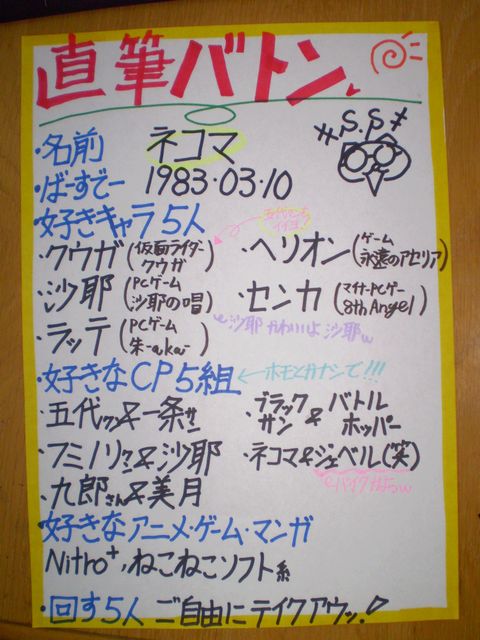 直筆バトン
S.P
・名前 ネコマ
・ばーすでー 1983・03・10
好きキャラ5人
五代さんも イイヨ!
・クウガ(仮面ライダークウガ) ・ヘリオン(ゲーム 永遠のアセリア)
・沙耶(PCゲーム 沙耶の唄) ・センカ(マイナーPCゲー 8th Angel)
沙耶 かわいいよ 沙耶w
・ラッテ(PCゲーム 朱-aka-)
好きなCP5組 ←ホモとかナシで!!!
・五代クン&一条サン ・ブラックサン&バトルホッパー
・フミノリ&沙耶 ・ネコマ&ジェベル(笑)
バイクだからw
・九郎さん&美月
・好きなアニメ・ゲーム・マンガ
Nitro+, ねこねこソフト系
・回す5人 ご自由にテイクアウッ!